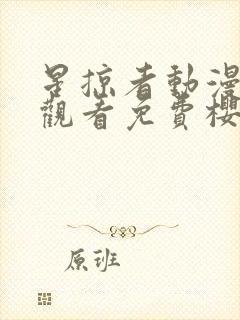 星掠者動漫
觀看免費櫻
原班